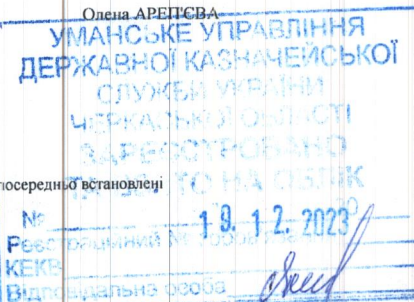 Олена АРЕП'ЄВА
УМАНСЬКЕ УПРАВЛІННЯ
ДЕРЖАВНОЇ КАЗНАЧЕЙСЬКОЇ
СЛУЖБИ УКРАЇНИ
ЧЕРКАСЬКОЇ ОБЛАСТІ
ЗАРЕЄСТРОВАНО
ТА ВЗЯТО НА ОБЛІК
посередньо встановлені
№
19. 12. 2023
Реєстраційний №
КЕКВ
Відповідальна особа